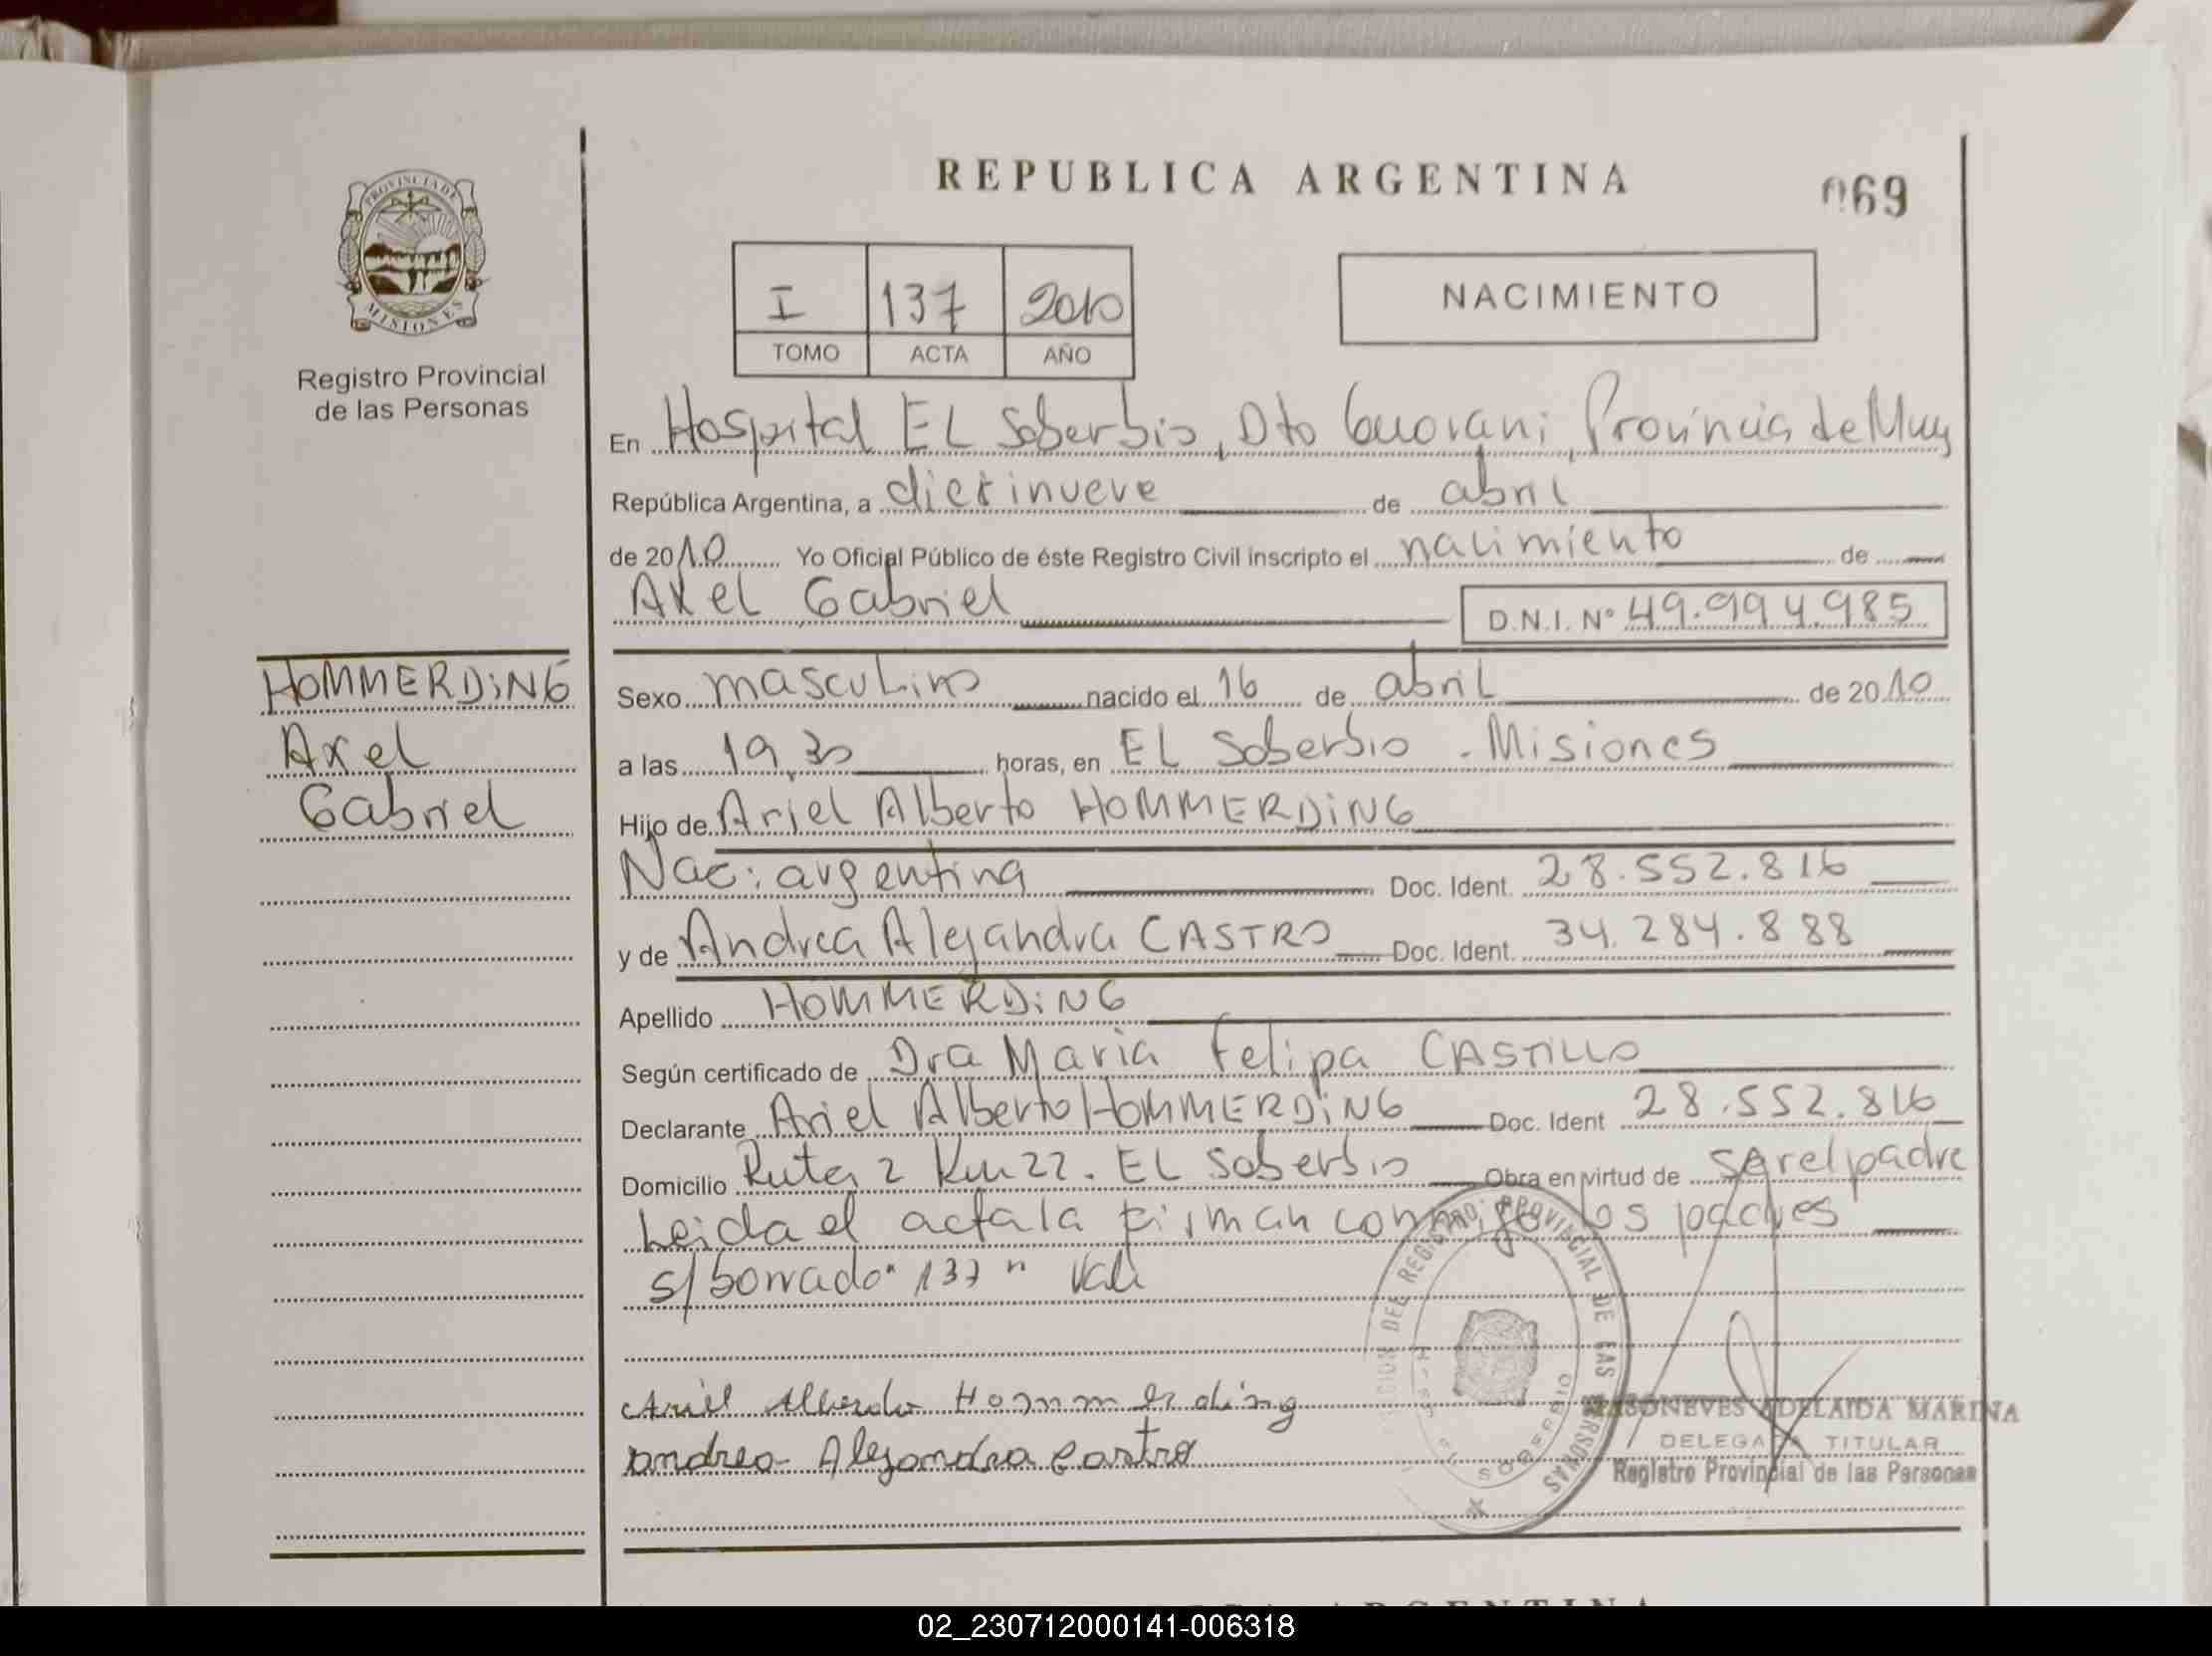 REPUBLICA ARGENTINA
069
PROVINCIA DE
MISIONES
Registro Provincial
de las Personas
I 137 2010
TOMO ACTA AÑO
NACIMIENTO
En Hospital EL Soberbio, Dto Guarani, Provincia de Mnes
República Argentina, a diecinueve de abril
de 2010 Yo Oficial Público de éste Registro Civil inscripto el nacimiento de
Axel Gabriel
D.N.I. Nº 49.994.985
HOMMERDiNG
Axel
Gabriel
Sexo masculino nacido el 16 de abril de 2010
a las 19,30 horas, en EL Soberbio - Misiones
Hijo de Ariel Alberto HOMMERDiNG
Nac: argentina Doc. Ident. 28.552.816
y de Andrea Alejandra CASTRO Doc. Ident. 34.284.888
Apellido HOMMERDiNG
Según certificado de Dra Maria Felipa CASTILLO
Declarante Ariel Alberto HOMMERDiNG Doc. Ident 28.552.816
Domicilio Ruta 2 Km 22. EL Soberbio Obra en virtud de ser el padre
Leida el acta la firman conmigo los padres
s/borrado "137" Vale
Ariel Alberto Hommerding
Andrea Alejandra Castro
DEL REGISTRO PROVINCIAL DE LAS PERSONAS
EL SOBERBIO
ADELAIDA MARINA
DELEGADA TITULAR
Registro Provincial de las Personas
02_230712000141-006318